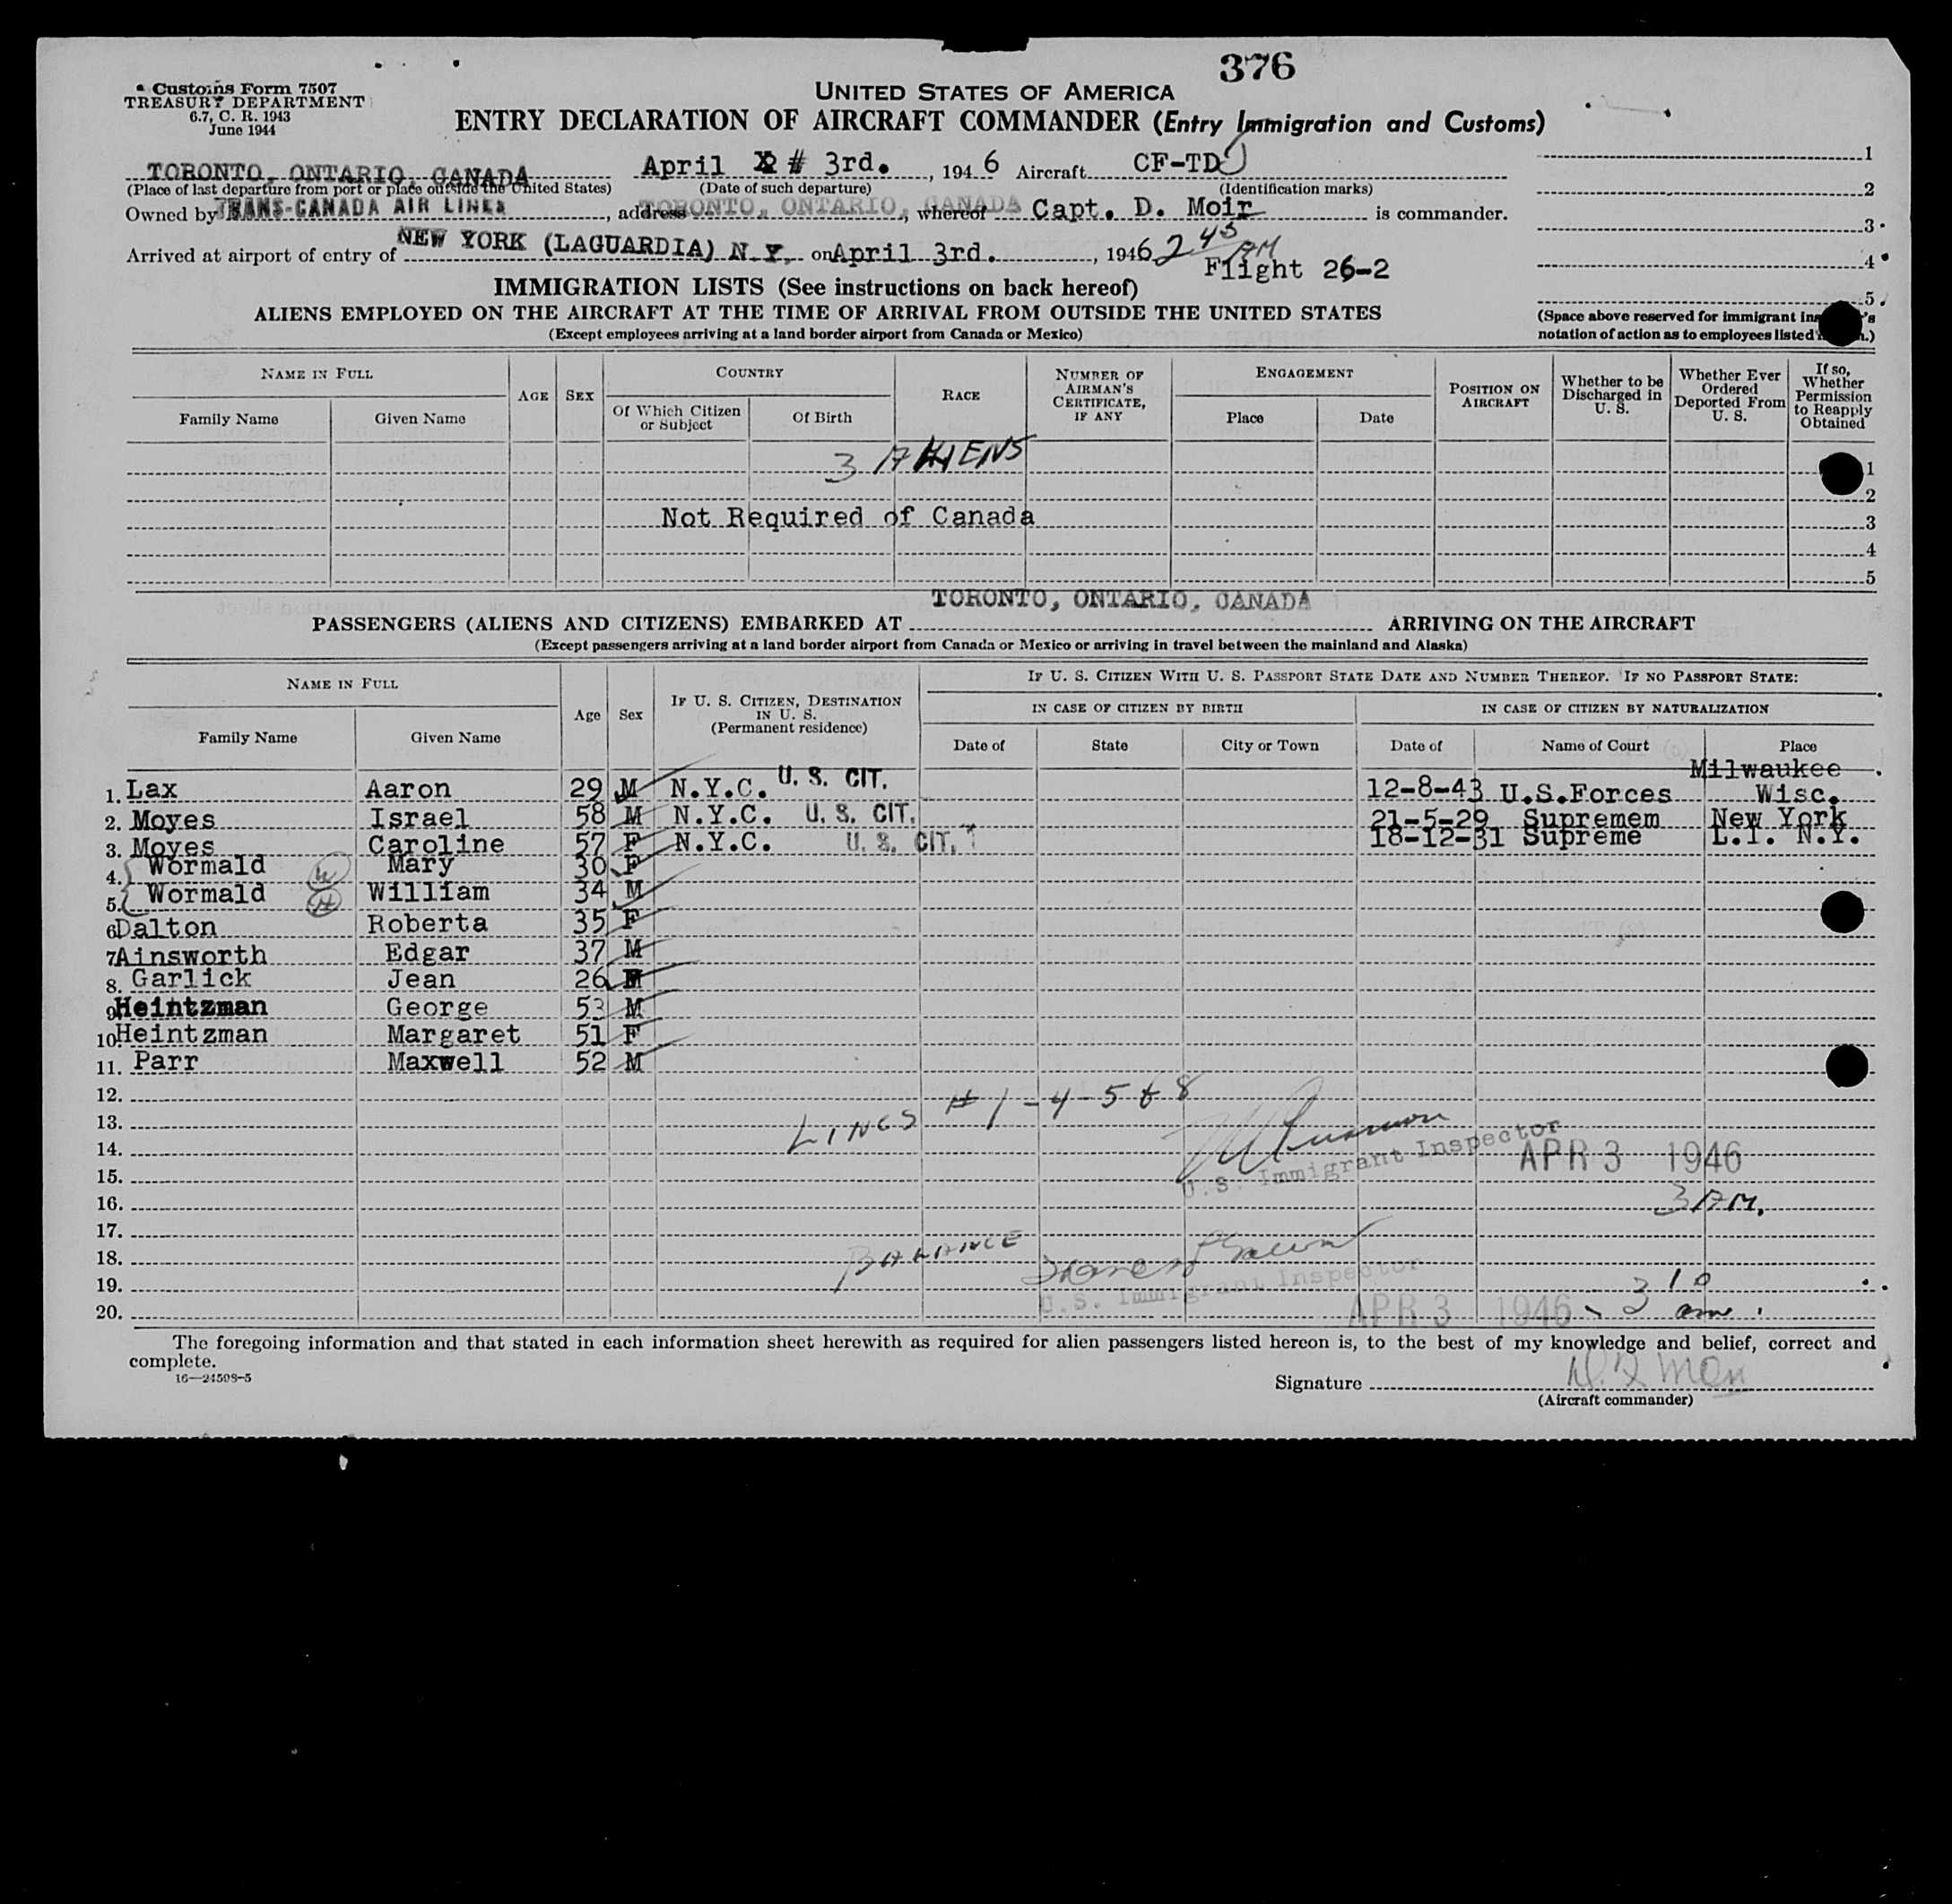 376
Customs Form 7507
TREASURY DEPARTMENT
6.7, C. R. 1943
June 1944
UNITED STATES OF AMERICA
ENTRY DECLARATION OF AIRCRAFT COMMANDER (Entry Immigration and Customs)
TORONTO, ONTARIO, CANADA April # 3rd., 1946 Aircraft CF-TDJ
(Place of last departure from port or place outside the United States) (Date of such departure) (Identification marks)
Owned by TRANS-CANADA AIR LINES, address TORONTO, ONTARIO, CANADA, whereof Capt. D. Moir is commander.
Arrived at airport of entry of NEW YORK (LAGUARDIA) N.Y. on April 3rd., 1946 2 45 AM
Flight 26-2
1
2
3
4
5
(Space above reserved for immigrant
notation of action as to employees listed
IMMIGRATION LISTS (See instructions on back hereof)
ALIENS EMPLOYED ON THE AIRCRAFT AT THE TIME OF ARRIVAL FROM OUTSIDE THE UNITED STATES
(Except employees arriving at a land border airport from Canada or Mexico)
NAME IN FULL AGE SEX COUNTRY RACE NUMBER OF AIRMAN'S CERTIFICATE, IF ANY ENGAGEMENT POSITION ON AIRCRAFT Whether to be Discharged in U. S. Whether Ever Ordered Deported From U. S. If so, Whether Permission to Reapply Obtained
Family Name Given Name Of Which Citizen or Subject Of Birth Place Date
3 ALIENS
1
2
Not Required of Canada 3
4
5
TORONTO, ONTARIO, CANADA
PASSENGERS (ALIENS AND CITIZENS) EMBARKED AT ARRIVING ON THE AIRCRAFT
(Except passengers arriving at a land border airport from Canada or Mexico or arriving in travel between the mainland and Alaska)
NAME IN FULL Age Sex IF U. S. CITIZEN, DESTINATION IN U. S. (Permanent residence) IF U. S. CITIZEN WITH U. S. PASSPORT STATE DATE AND NUMBER THEREOF. IF NO PASSPORT STATE:
IN CASE OF CITIZEN BY BIRTH IN CASE OF CITIZEN BY NATURALIZATION
Family Name Given Name Date of State City or Town Date of Name of Court Place
Milwaukee
1. Lax Aaron 29 M N.Y.C. U. S. CIT. 12-8-43 U.S.Forces Wisc.
2. Moyes Israel 58 M N.Y.C. U. S. CIT. 21-5-29 Supremem New York
3. Moyes Caroline 57 F N.Y.C. U. S. CIT. 18-12-31 Supreme L.I. N.Y.
4. Wormald W Mary 30 F
5. Wormald H William 34 M
6 Dalton Roberta 35 F
7 Ainsworth Edgar 37 M
8. Garlick Jean 26
9 Heintzman George 53 M
10 Heintzman Margaret 51 F
11. Parr Maxwell 52 M
12.
13. LINES # 1-4-5 & 8
14. U.S. Immigrant Inspector APR 3 1946
15.
16. 3 AM.
17.
18. BALANCE
19. U.S. Immigrant Inspector 3 10
20. APR 3 1946 am
The foregoing information and that stated in each information sheet herewith as required for alien passengers listed hereon is, to the best of my knowledge and belief, correct and
complete.
16—24508-5
Signature
(Aircraft commander)